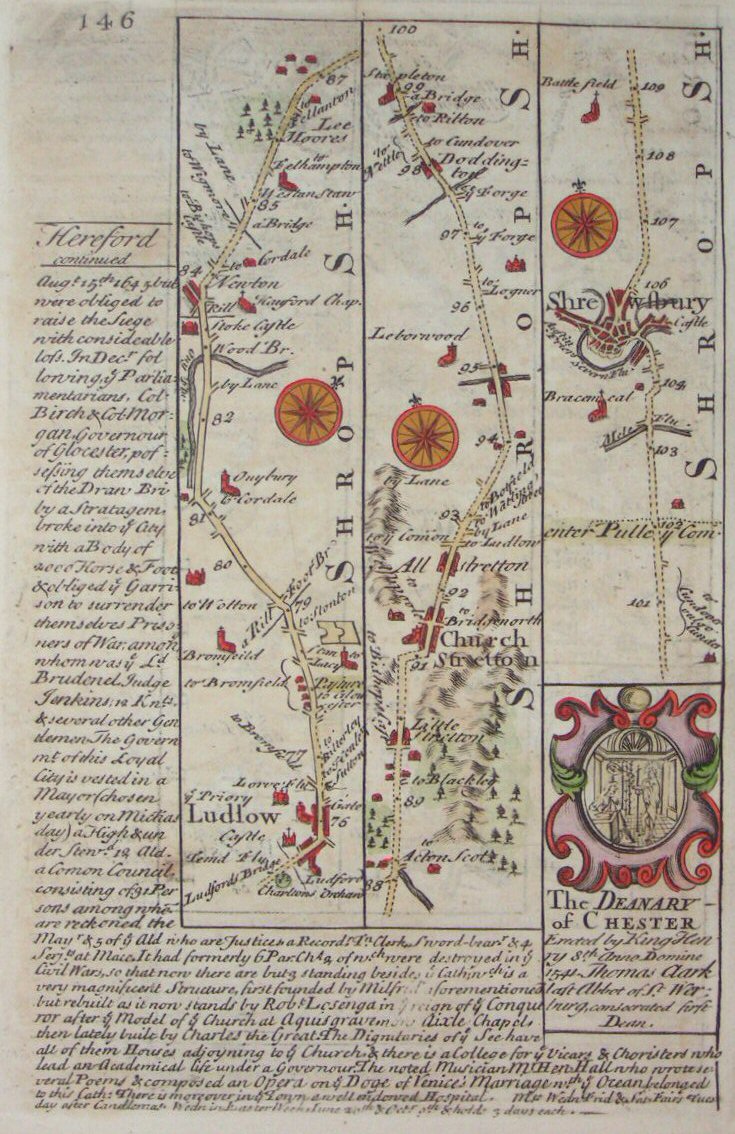 146
Hereford
continued
Augt. 15th. 1645 but
were obliged to
raise the Siege
with consideable
loss. In Decr. fol
lowing, ye Parlia
mentarians, Col.
Birch & Col. Mor-
gan, Governour
of Glocester, pos-
sessing themselve
of the Draw Bri
by a Stratagem,
broke into ye City
with a Body of
2000 Horse & Foot
& obliged ye Garri-
son to surrender
themselves Priso-
ners of War, among
whom was ye Ld.
Brudenel, Judge
Jenkins, 12 Knts.
& several other Gen
tlemen. The Govern
mt. of this Loyal
City is vested in a
Mayor (chosen
yearly on Michas
day) a High & un
der Stewd. 12 Ald.
a Comon Council,
consisting of 31 Per
sons among whom
are reckoned the
Mayr. & 5 of ye Ald who are Justices, a Recordr. Tn. Clerk, Sword-bearr. & 4
Serjts. at Mace. It had formerly 6 Par. Chs. 2 of wch. were destroyed in ye
Civil Wars, so that now there are but 4 standing besides ye Cath. wch. is a
very magnificent Structure, first founded by Milfrid aforementioned
but rebuilt as it now stands by Robt. Losenga in ye reign of ye Conque
ror after ye Model of ye Church at Aquisgrave Aixle Chapel,
then lately built by Charles the Great. The Dignitaries of ye See have
all of them Houses adjoyning to ye Church, & there is a College for ye Vicars & Choristers who
lead an Academical life under a Governour. The noted Musician Mr. Hen. Hall who wrote se-
veral Poems & composed an Opera on ye Doge of Venice's Marriage wth. ye Ocean, belonged
to this Cath. There is moreover in ye Town a well endowed Hospital. Mts. Wedn. Frid & Sat. Fairs Tues
day after Candlemas. Wedn in Easter Week, June 20th & Octr. 9th & holds 3 days each.
87
to Fellanton
Lee
Moores
to Felhampton
Westanstaw
by Lane
to Wigmore
to Bishops
Castle
85
a Bridge
to Cordale
84
Newton
Rill
Hayford Chap.
Stoke Castle
Wood Br.
by Lane
82
Onybury
to Cordale
81
80
to Wotton
Foot Br.
79
a Rill
to Stonton
Bromfeild
to Bromfield
77
Lorve Flu
ye Priory
Ludlow
Castle
75
Temd Flu
Ludfords Bridge
Ludford
Charltons Orchard
SHROPSH.
100
Stapleton
99
a Bridge
to Rilton
to Cundover
to Nettle
98
Dodding-
ton
ye Forge
97
to ye Forge
to Logner
96
Leborwood
95
94
by Lane
to Botfield
to Watling
Street
93
by Lane
to ye Comon
to Ludlow
All Stretton
92
to Bridgenorth
Church
Stretton
91
to Bishops Cast
Little
Stretton
to Blackley
89
to
Acton Scot
88
SHROPSH.
109
Battlefield
108
107
106
Shrewsbury
Castle
Severn Flu
104
Bracemeal
Mele Flu.
103
102
enter Pulley Com.
101
to Cundover
SHROPSH.
The DEANARY
of CHESTER
Erected by King Hen
ry 8th. Anno Domine
1541. Thomas Clark
last Abbot of St. Wer-
burg, consecrated first
Dean.